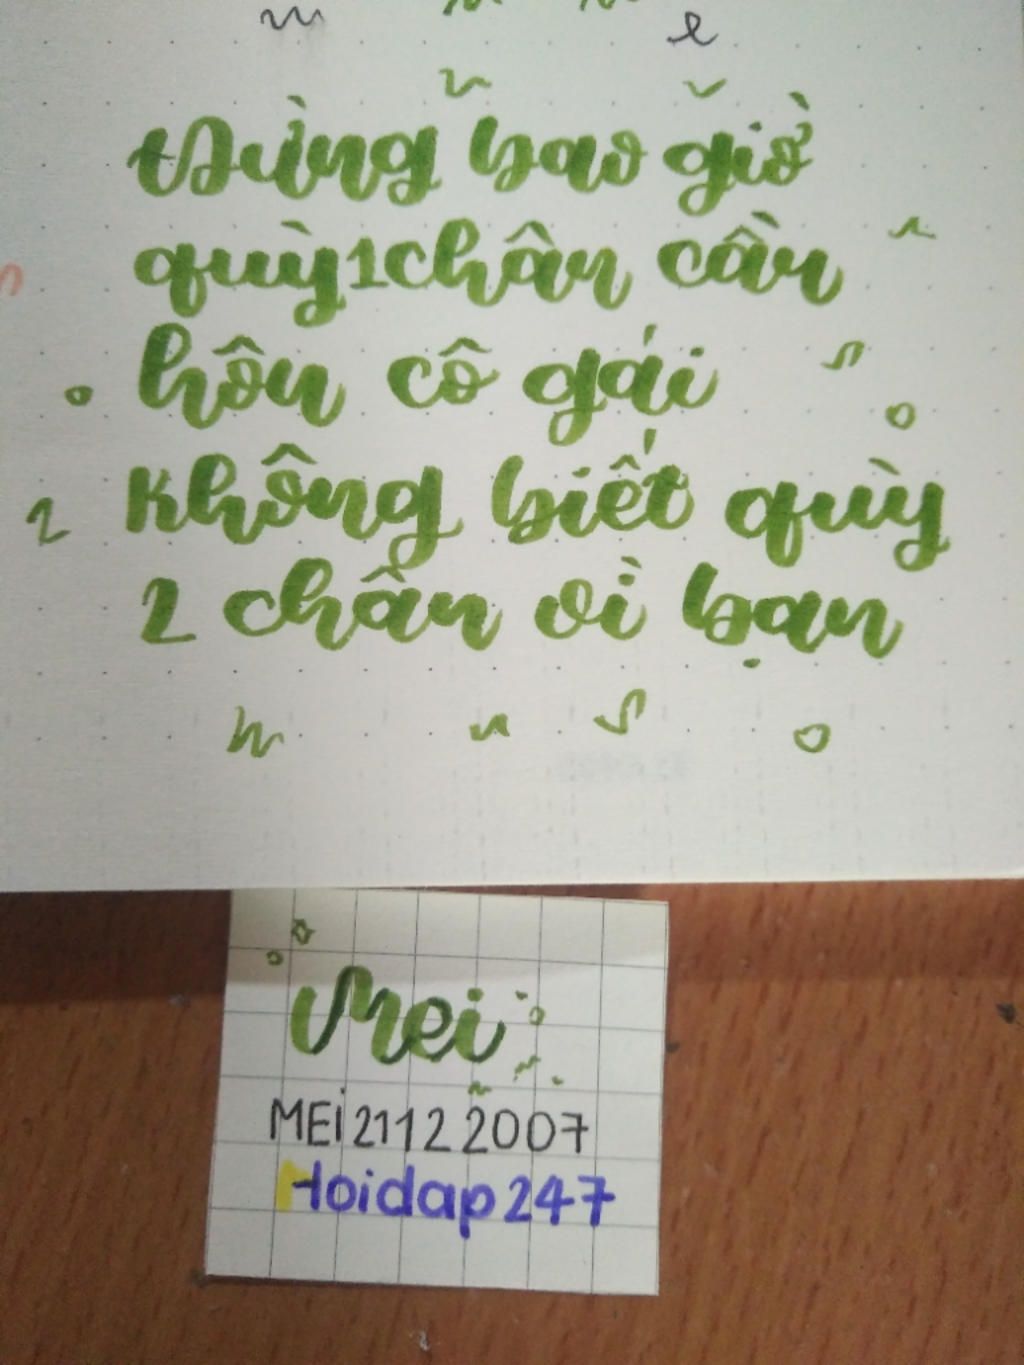 Đừng bao giờ
quỳ 1 chân cần
hôn cô gái
không biết quỳ
2 chân vì bạn
Mei
MEi 2112 2007
Hoidap247